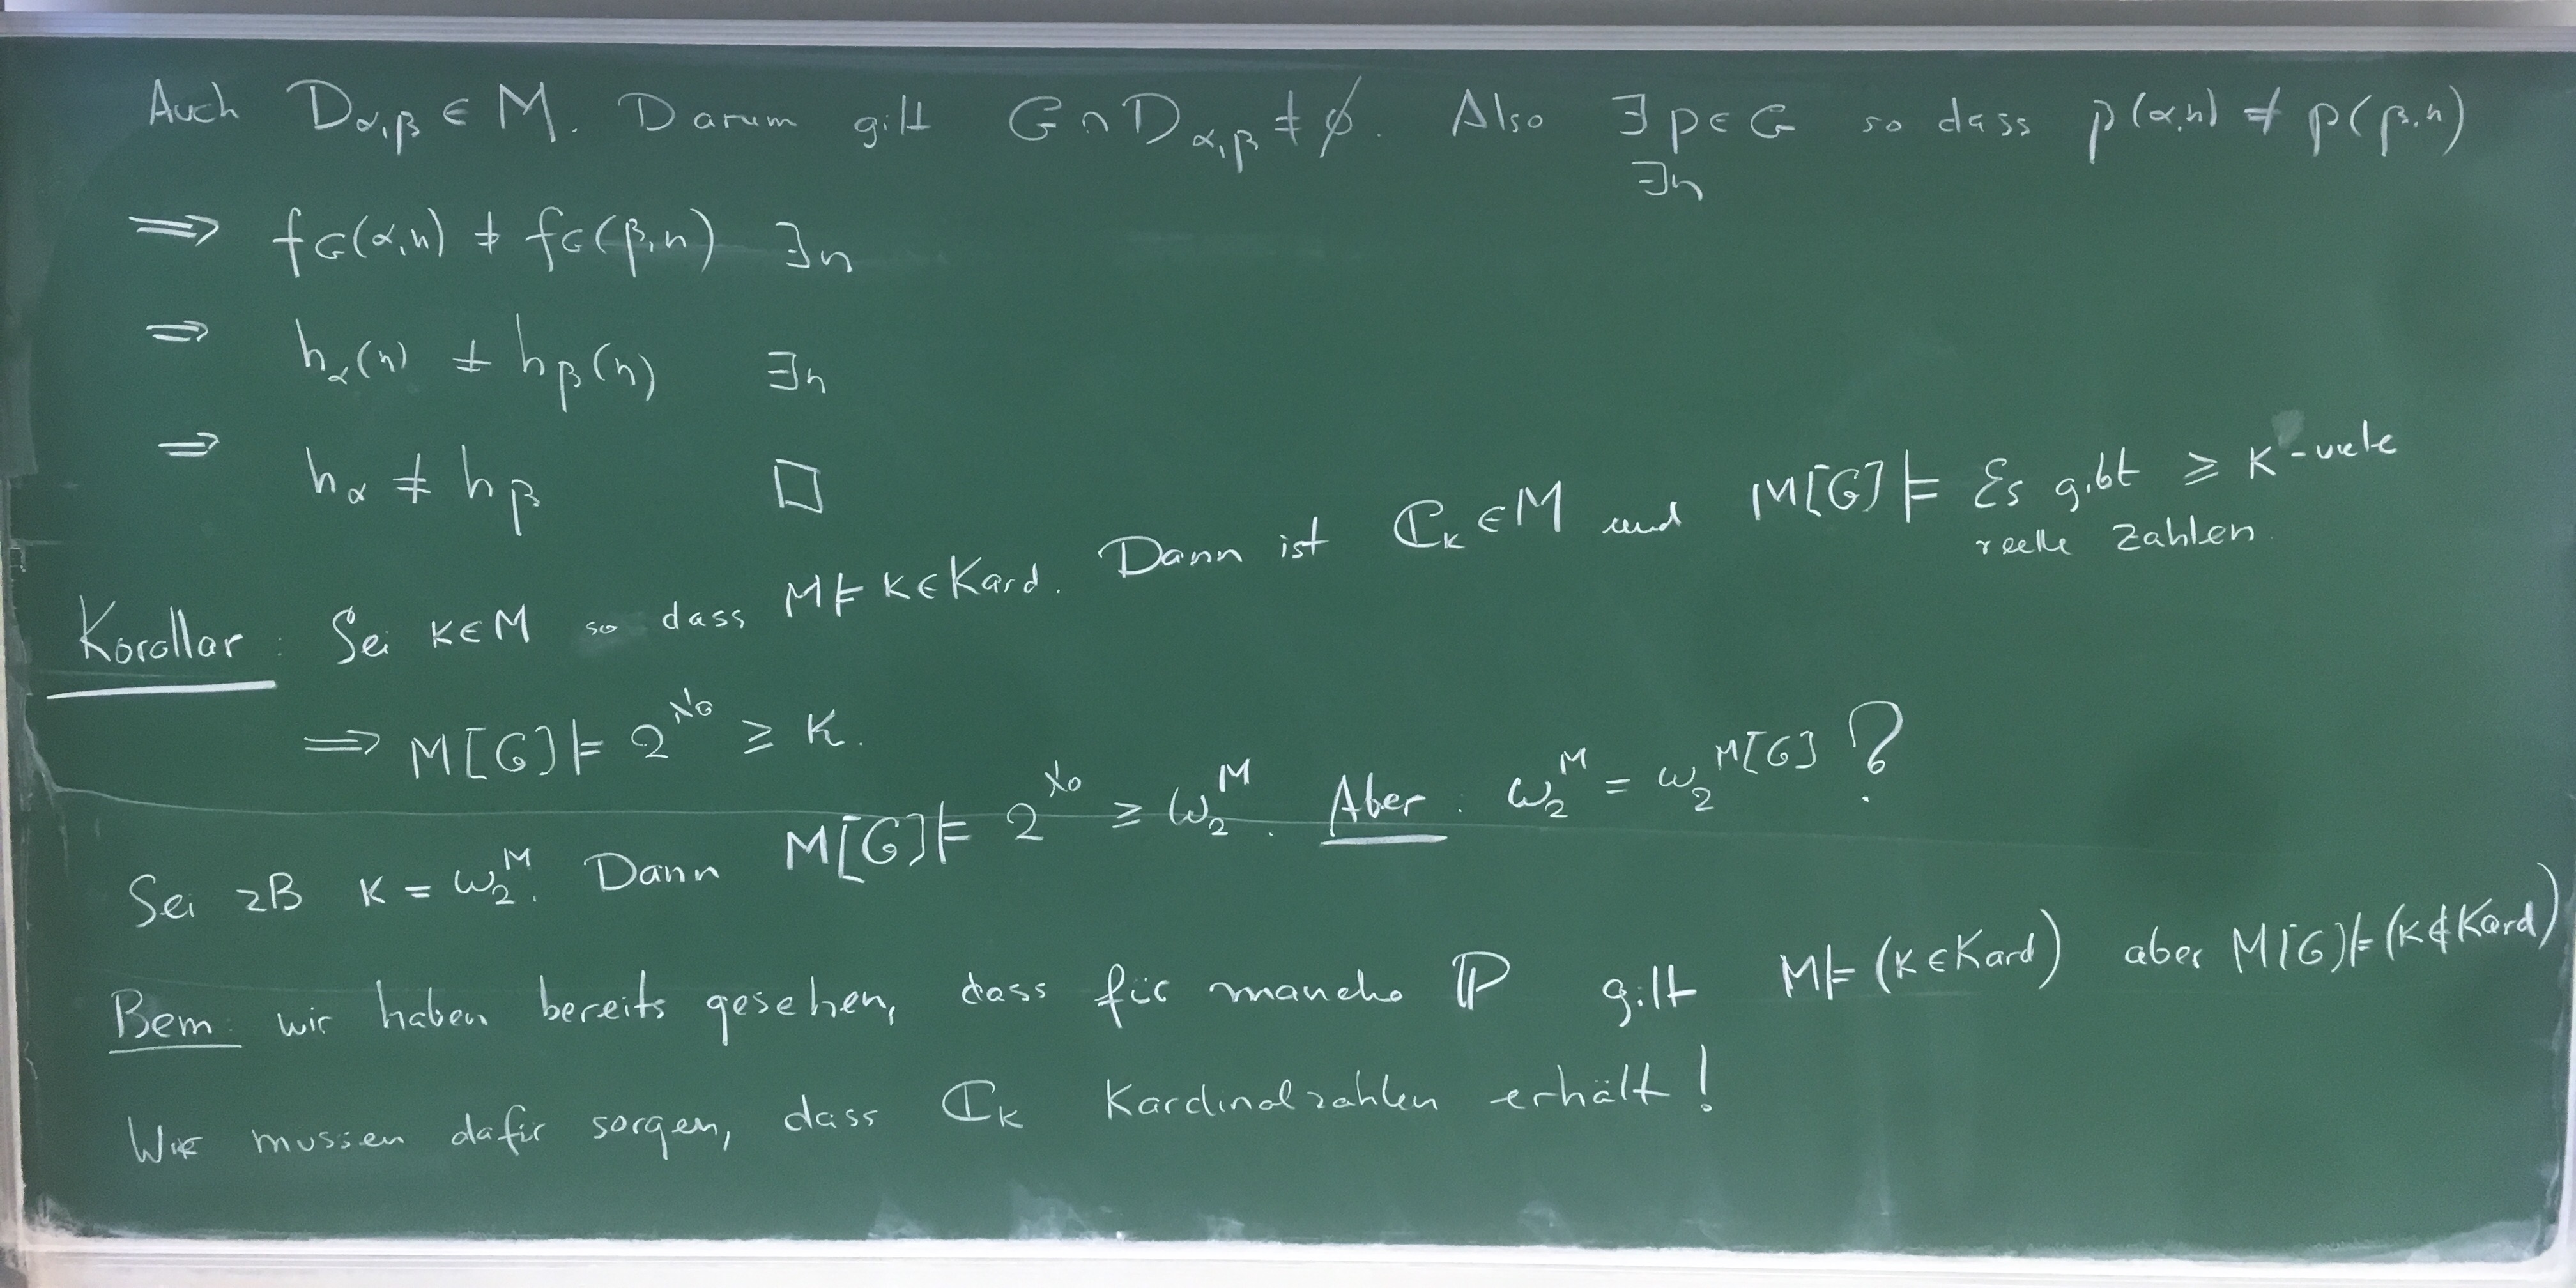 Auch D_{α,β} ∈ M. Darum gilt G ∩ D_{α,β} ≠ ∅. Also ∃p ∈ G so dass p(α,n) ≠ p(β,n)
∃n
⟹ f_G(α,n) ≠ f_G(β,n) ∃n
⟹ h_α(n) ≠ h_β(n) ∃n
⟹ h_α ≠ h_β □
Korollar: Sei κ∈M so dass M ⊨ κ∈Kard. Dann ist ℂ_κ ∈ M und M[G] ⊨ Es gibt ≥ κ-viele
reelle Zahlen.
⟹ M[G] ⊨ 2^{ℵ_0} ≥ κ.
Sei zB κ = ω_2^M. Dann M[G] ⊨ 2^{ℵ_0} ≥ ω_2^M. Aber: ω_2^M = ω_2^{M[G]} ?
Bem: wir haben bereits gesehen, dass für manche ℙ gilt M ⊨ (κ∈Kard) aber M[G] ⊨ (κ∉Kard)
Wir mussen dafür sorgen, dass ℂ_κ Kardinalzahlen erhält!